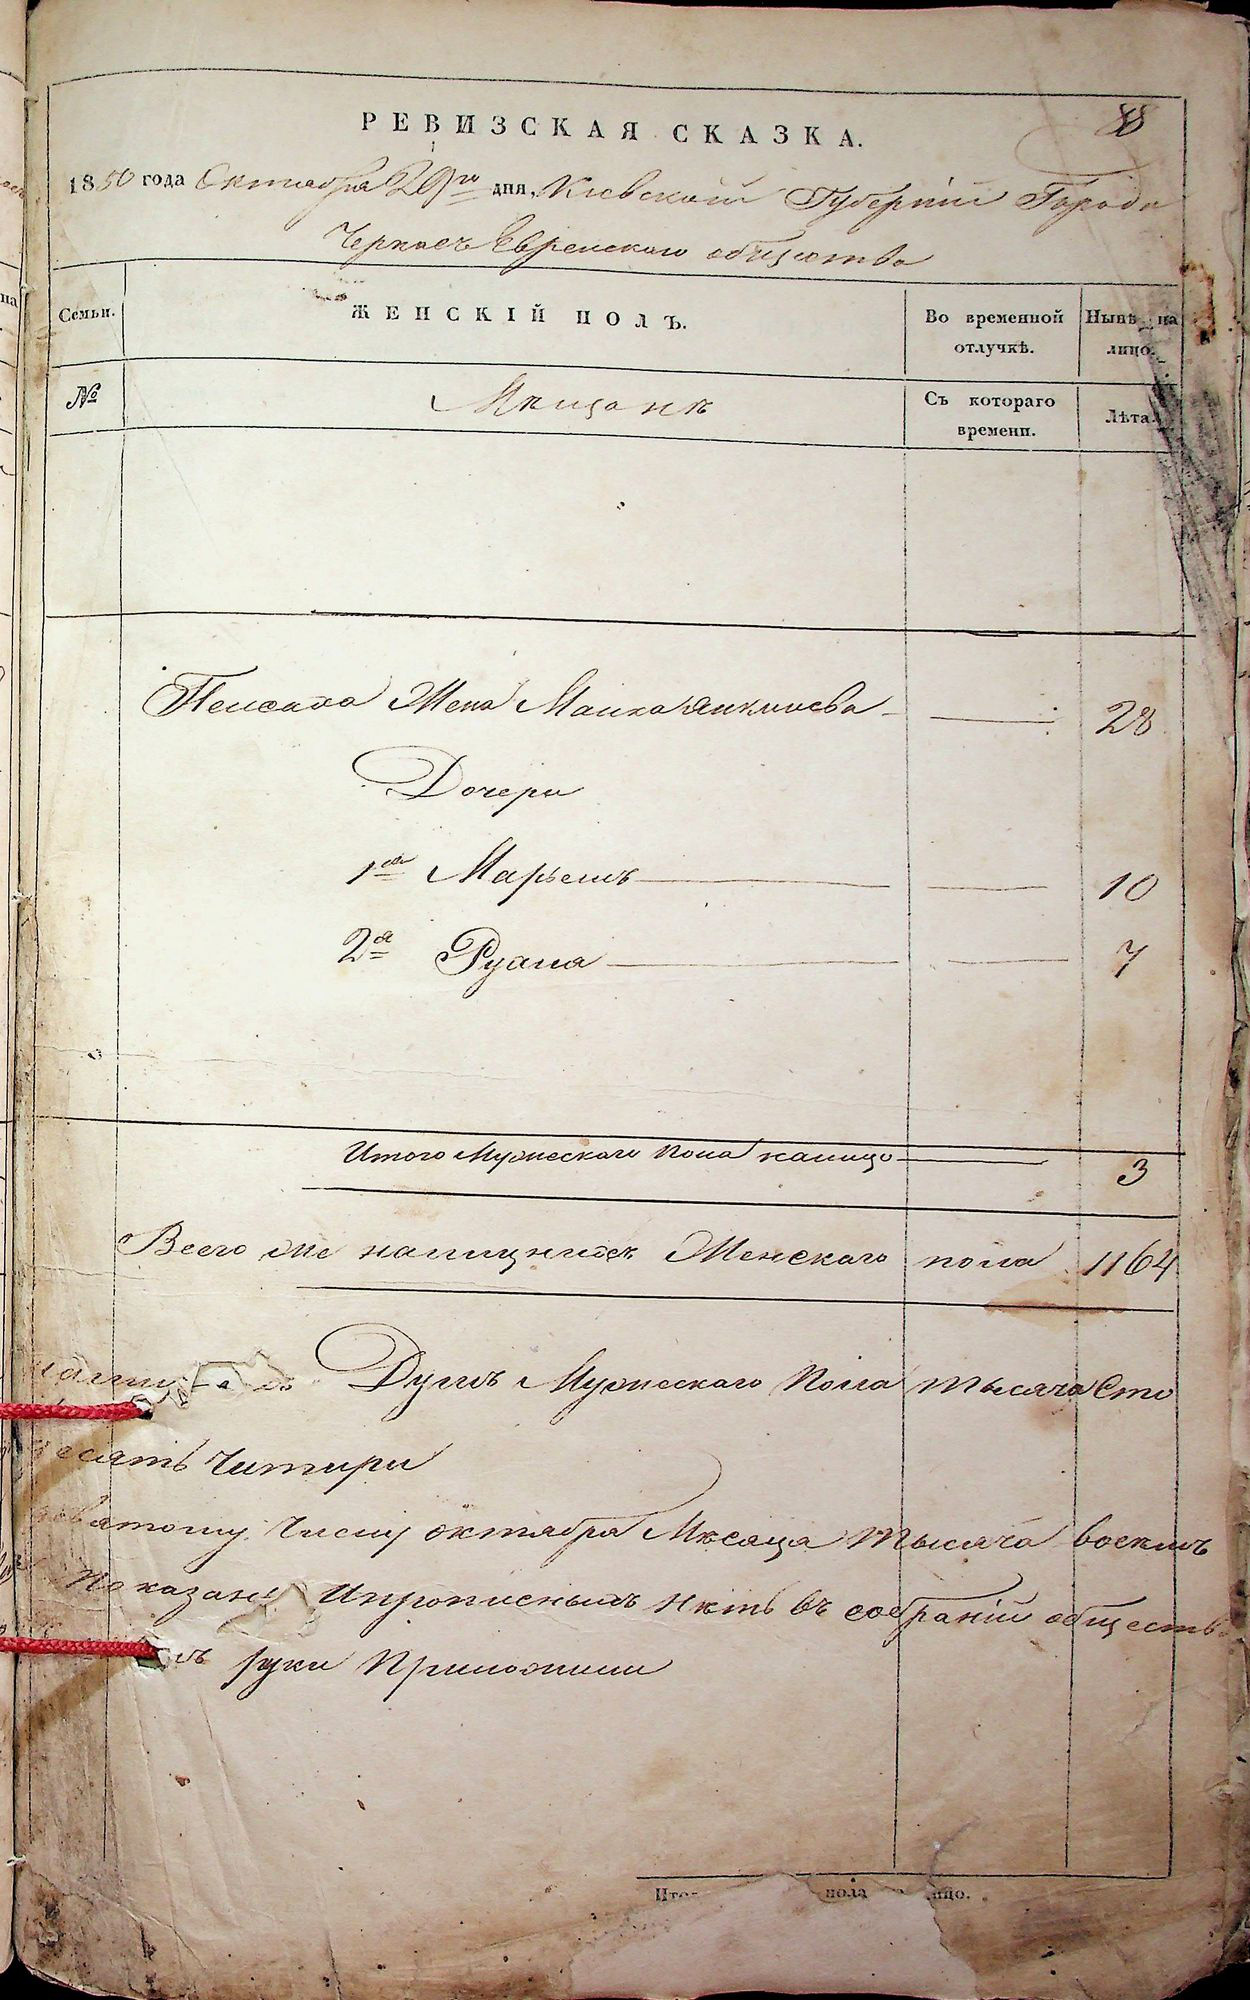 88
РЕВИЗСКАЯ СКАЗКА.
1850 года Октября 29го дня, Кіевской Губерніи Города
Черкасъ Еврейскаго общества
Семьи.
ЖЕНСКІЙ ПОЛЪ.
Во временной отлучкѣ.
Нынѣ на лицо.
№
Мѣщанъ
Съ котораго времени.
Лѣта.
Жена Малка Янкилиева 28
Дочери
1ая Марьемъ 10
2я Рухля 7
Итого Мужескаго пола налицо 3
Всего же налицность Женскаго пола 1164
Душъ Мужескаго Пола тысяча Сто
десятъ Читыри
девятому Числу октября Мѣсяца тысяча восемъ
Показаны Ипрописныхъ нѣтъ въ собраніи общества
руки Приложили
пола лицо.